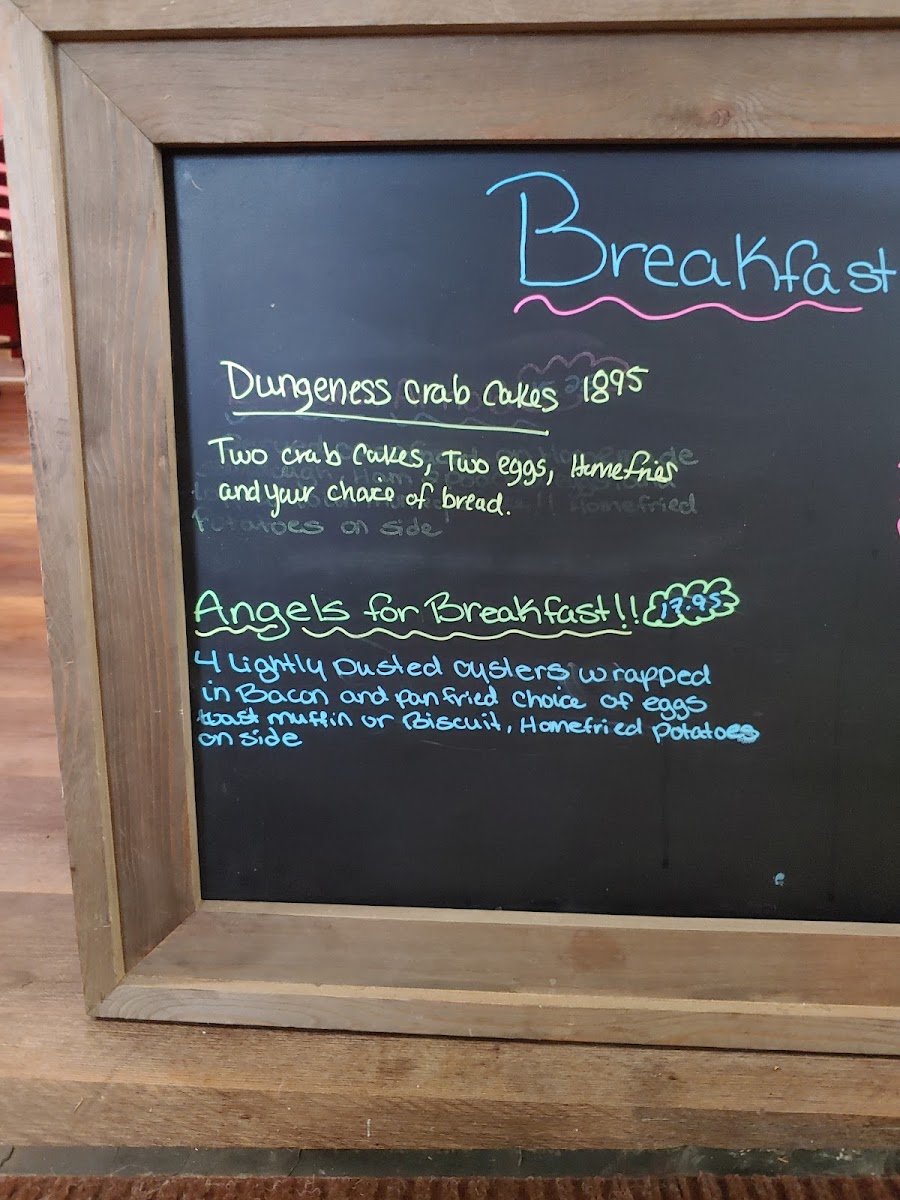 Breakfast
Dungeness Crab Cakes 1895
Two crab Cakes, Two eggs, Homefries
and your choice of bread.
Potatoes on side
Angels for Breakfast!! 17.95
4 Lightly Dusted oysters wrapped
in Bacon and pan fried choice of eggs
toast muffin or Biscuit, Homefried Potatoes
on side